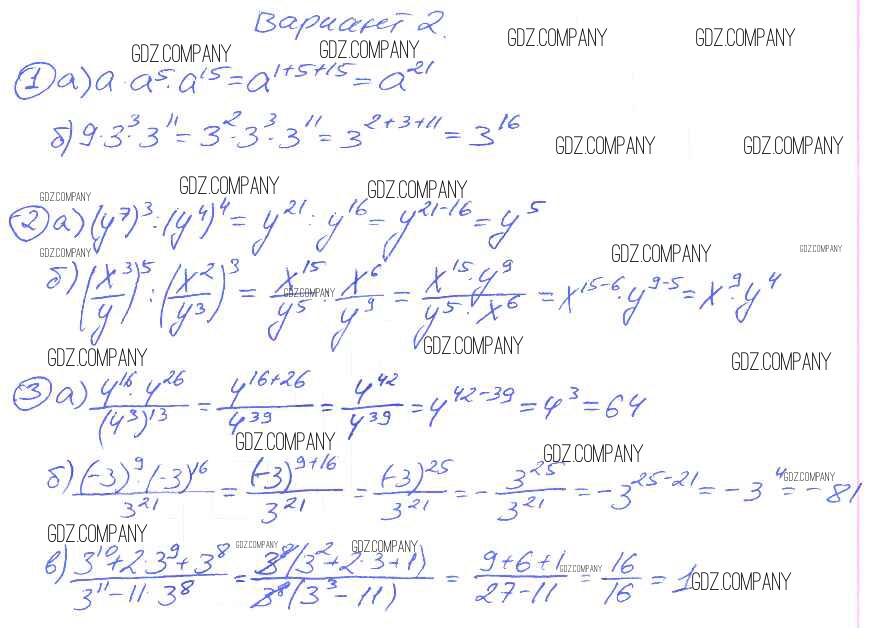 Вариант 2.
GDZ.COMPANY GDZ.COMPANY GDZ.COMPANY GDZ.COMPANY
① а) a · a⁵ · a¹⁵ = a¹⁺⁵⁺¹⁵ = a²¹
б) 9 · 3³ · 3¹¹ = 3² · 3³ · 3¹¹ = 3²⁺³⁺¹¹ = 3¹⁶
GDZ.COMPANY GDZ.COMPANY
GDZ.COMPANY GDZ.COMPANY GDZ.COMPANY
② а) (y⁷)³ : (y⁴)⁴ = y²¹ : y¹⁶ = y²¹⁻¹⁶ = y⁵
GDZ.COMPANY GDZ.COMPANY GDZ.COMPANY
б) (x³/y)⁵ : (x²/y³)³ = x¹⁵/y⁵ : x⁶/y⁹ = x¹⁵·y⁹/y⁵·x⁶ = x¹⁵⁻⁶ · y⁹⁻⁵ = x⁹·y⁴
GDZ.COMPANY
GDZ.COMPANY GDZ.COMPANY GDZ.COMPANY
③ а) 4¹⁶·4²⁶/(4³)¹³ = 4¹⁶⁺²⁶/4³⁹ = 4⁴²/4³⁹ = 4⁴²⁻³⁹ = 4³ = 64
GDZ.COMPANY GDZ.COMPANY
б) (-3)⁹·(-3)¹⁶/3²¹ = (-3)⁹⁺¹⁶/3²¹ = (-3)²⁵/3²¹ = - 3²⁵/3²¹ = -3²⁵⁻²¹ = -3⁴ = -81
GDZ.COMPANY
GDZ.COMPANY GDZ.COMPANY GDZ.COMPANY
в) 3¹⁰+2·3⁹+3⁸/3¹¹-11·3⁸ = 3⁸(3²+2·3+1)/3⁸(3³-11) = 9+6+1/27-11 = 16/16 = 1
GDZ.COMPANY GDZ.COMPANY